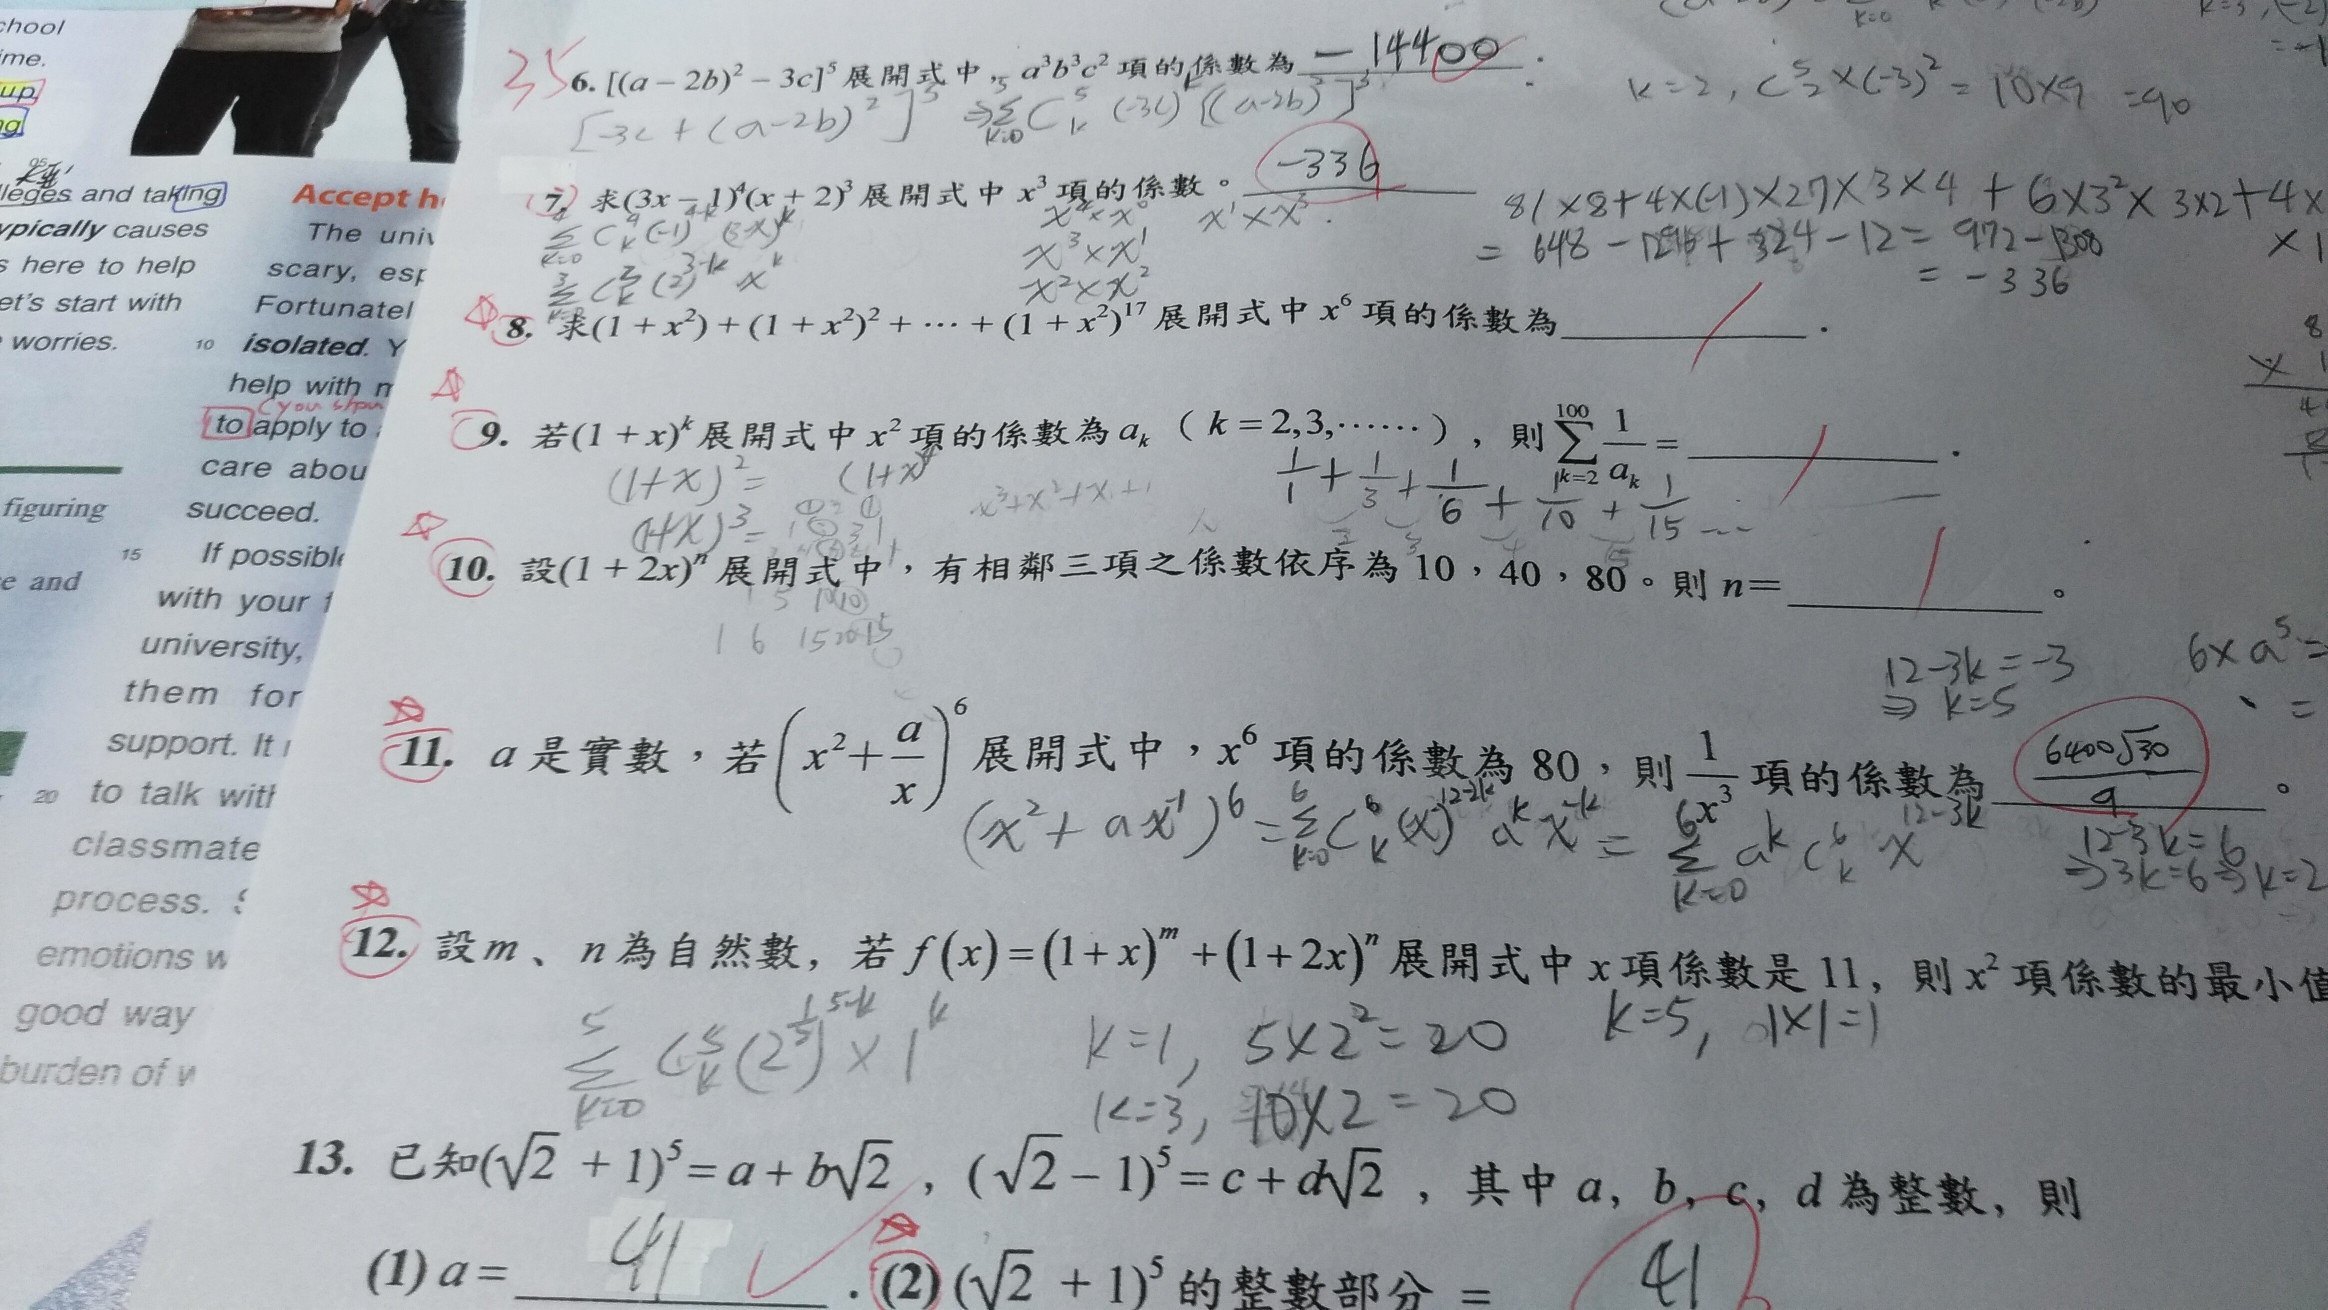 chool
ime.
up
ng
lleges and taking
ypically causes
s here to help
et's start with
worries.
figuring
e and
Accept h
The univ
scary, esp
Fortunatel
10 isolated. Y
help with m
to apply to
care abou
succeed.
15 If possible
with your
university,
them for
support. It
20 to talk with
classmate
process.
emotions w
good way
burden of
35
6. [(a − 2b)² − 3c]⁵ 展開式中，a³b³c² 項的係數為 −14400.
[-3c + (a-2b)²]⁵ ⇒
k=2, C⁵₂ × (-3)² = 10×9 = 90
7. 求(3x − 1)⁴(x + 2)³ 展開式中 x³ 項的係數。 −336
x⁴×x⁰ x¹×x³
x³×x¹
x²×x²
81×8+4×(-1)×27×3×4 + 6×3²×3×2+4×
= 648 − 1296 + 324 − 12 = 972 − 1308
= −336
8. 求(1 + x²) + (1 + x²)² + ⋯ + (1 + x²)¹⁷ 展開式中 x⁶ 項的係數為 .
9. 若(1 + x)ᵏ 展開式中 x² 項的係數為 aₖ（k = 2,3,⋯⋯），則 ∑_{k=2}^{100} 1/aₖ = .
(1+x)² =
(1+x)³ =
x³+x²+x+1
1/1 + 1/3 + 1/6 + 1/10 + 1/15 ...
10. 設(1 + 2x)ⁿ 展開式中，有相鄰三項之係數依序為 10，40，80。則 n= 。
1 6 15 20 15
12-3k = -3
⇒ k=5
6×a⁵ =
11. a 是實數，若 (x² + a/x)⁶ 展開式中，x⁶ 項的係數為 80，則 1/x³ 項的係數為 6400√30/9 。
(x² + ax⁻¹)⁶ = ∑_{k=0}^{6} C⁶ₖ (x)^{12-2k} aᵏ x⁻ᵏ = ∑_{k=0}^{6} aᵏ C⁶ₖ x^{12-3k}
12-3k=6
⇒3k=6⇒k=2
12. 設 m、n 為自然數，若 f(x) = (1+x)ᵐ + (1+2x)ⁿ 展開式中 x 項係數是 11，則 x² 項係數的最小值
k=1, 5×2² = 20 k=5, 1×1=1
k=3, 10×2 = 20
13. 已知(√2 + 1)⁵ = a + b√2，(√2 − 1)⁵ = c + d√2，其中 a，b，c，d 為整數，則
(1) a = 41 . (2) (√2 + 1)⁵ 的整數部分 = 41